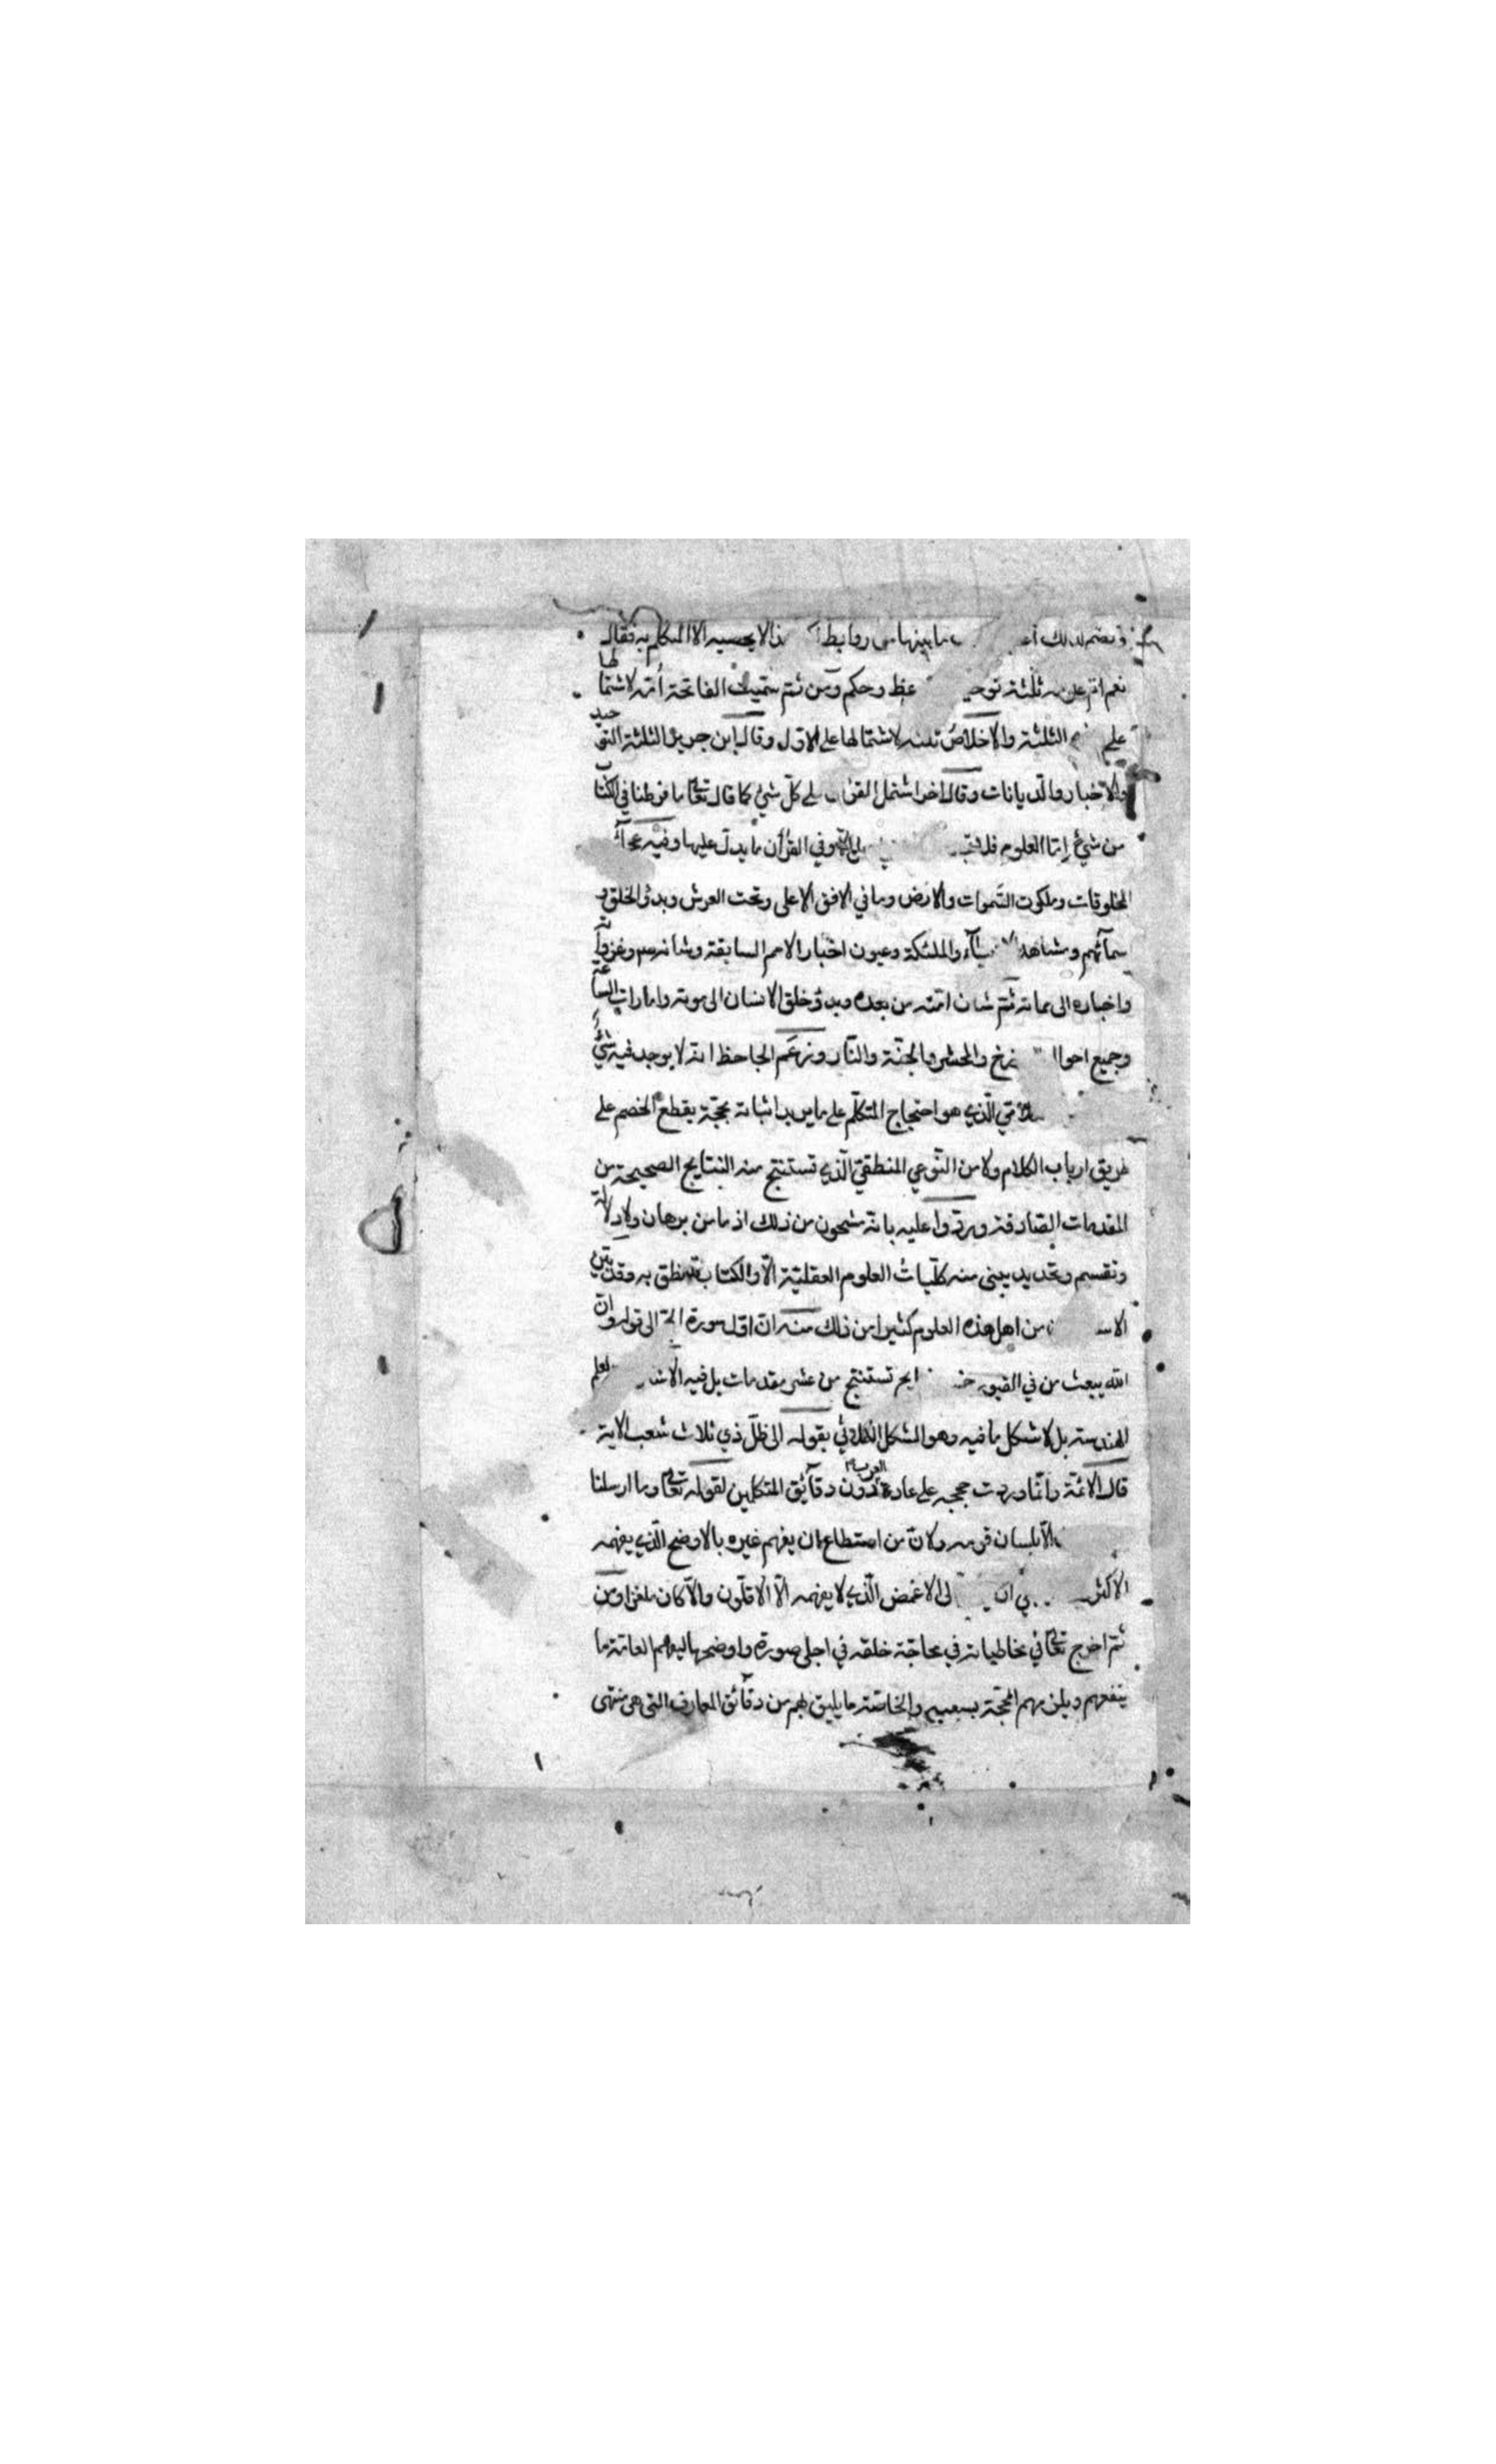 وبضم لذلك ما بينها من روابط ذا لا يحصيه الا المتكلم به فقال
نعم ام علومه ثلثة توحيد وحكم ومن ثم سميت الفاتحة أمه لاشتمالها
على الثلثة والاخلاص ثلثه لاشتمالها على الاول وقال ابن جرير الثلثة التوحيد
والاخبار والديانات وقال اخر اشتمل القران على كل شئ كما قال تعالى ما فرطنا في الكتاب
من شئ اما العلوم فلا وفي القرآن ما يدل عليها وفيه عجائب
المخلوقات وملكوت السموات والارض وما في الافق الاعلى وتحت العرش وبدؤ الخلق و
اسمآئهم ومشاهد والملئكة وعيون اخبار الامم السابقة وشانه وغزواته
واخباره الى مماته ثم شان امته من بعده وبدؤ خلق الانسان الى موته وامارات الساعة
وجميع احوا زخ والحشر والجنة والنار وزعم الجاحظ انه لا يوجد فيه شئ
الذي هو احتجاج المتكلم على ما يريد اثباته بحجة يقطع الخصم على
طريق ارباب الكلام ولا من النوعي المنطقي الذي تستنتج منه النتايج الصحيحة من
المقدمات الصادقة وردوا عليه بانه مشحون من ذلك اذ ما من برهان ولا دلالة
وتقسيم وتحديد يبنى منه كليات العلوم العقلية الا والكتاب نطق به وقد بين
من اهل هذه العلوم كثيرا من ذلك منه ان اول سورة الحج الى قوله وان
الله يبعث من في القبور تستنتج من عشر مقدمات بل فيه لعلم
الهندسة بل لاشكل ما فيه وهو الشكل بقوله الى ظل ذي ثلاث شعب الاية
قال الائمة وانما وردت حججه على عادة العرب دون دقآئق المتكلمين لقوله تعالى وما ارسلنا
الا بلسان قومه ولان من استطاع ان يفهم غيره بالاوضح الذي يفهمه
الاكثر لى الاغمض الذي لا يفهمه الا الاقلون والا كان ملغزا ومن
ثم اخرج تعالى في مخاطباته في محاجة خلقه في اجلى صورة واوضحها ليفهم العامة ما
ينفعهم ويلزمهم الحجة بسببه والخاصة ما يليق بهم من دقآئق المعارف التى هى منتهى